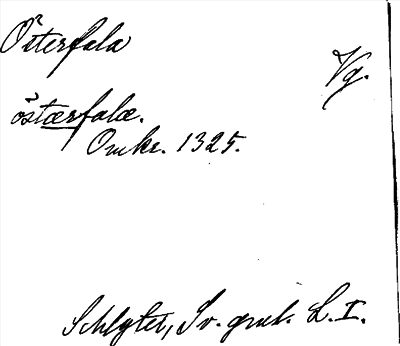 Österfala
Vg.
östærfalæ.
Omkr. 1325.
Schlyter, Sv. gml. L. I.